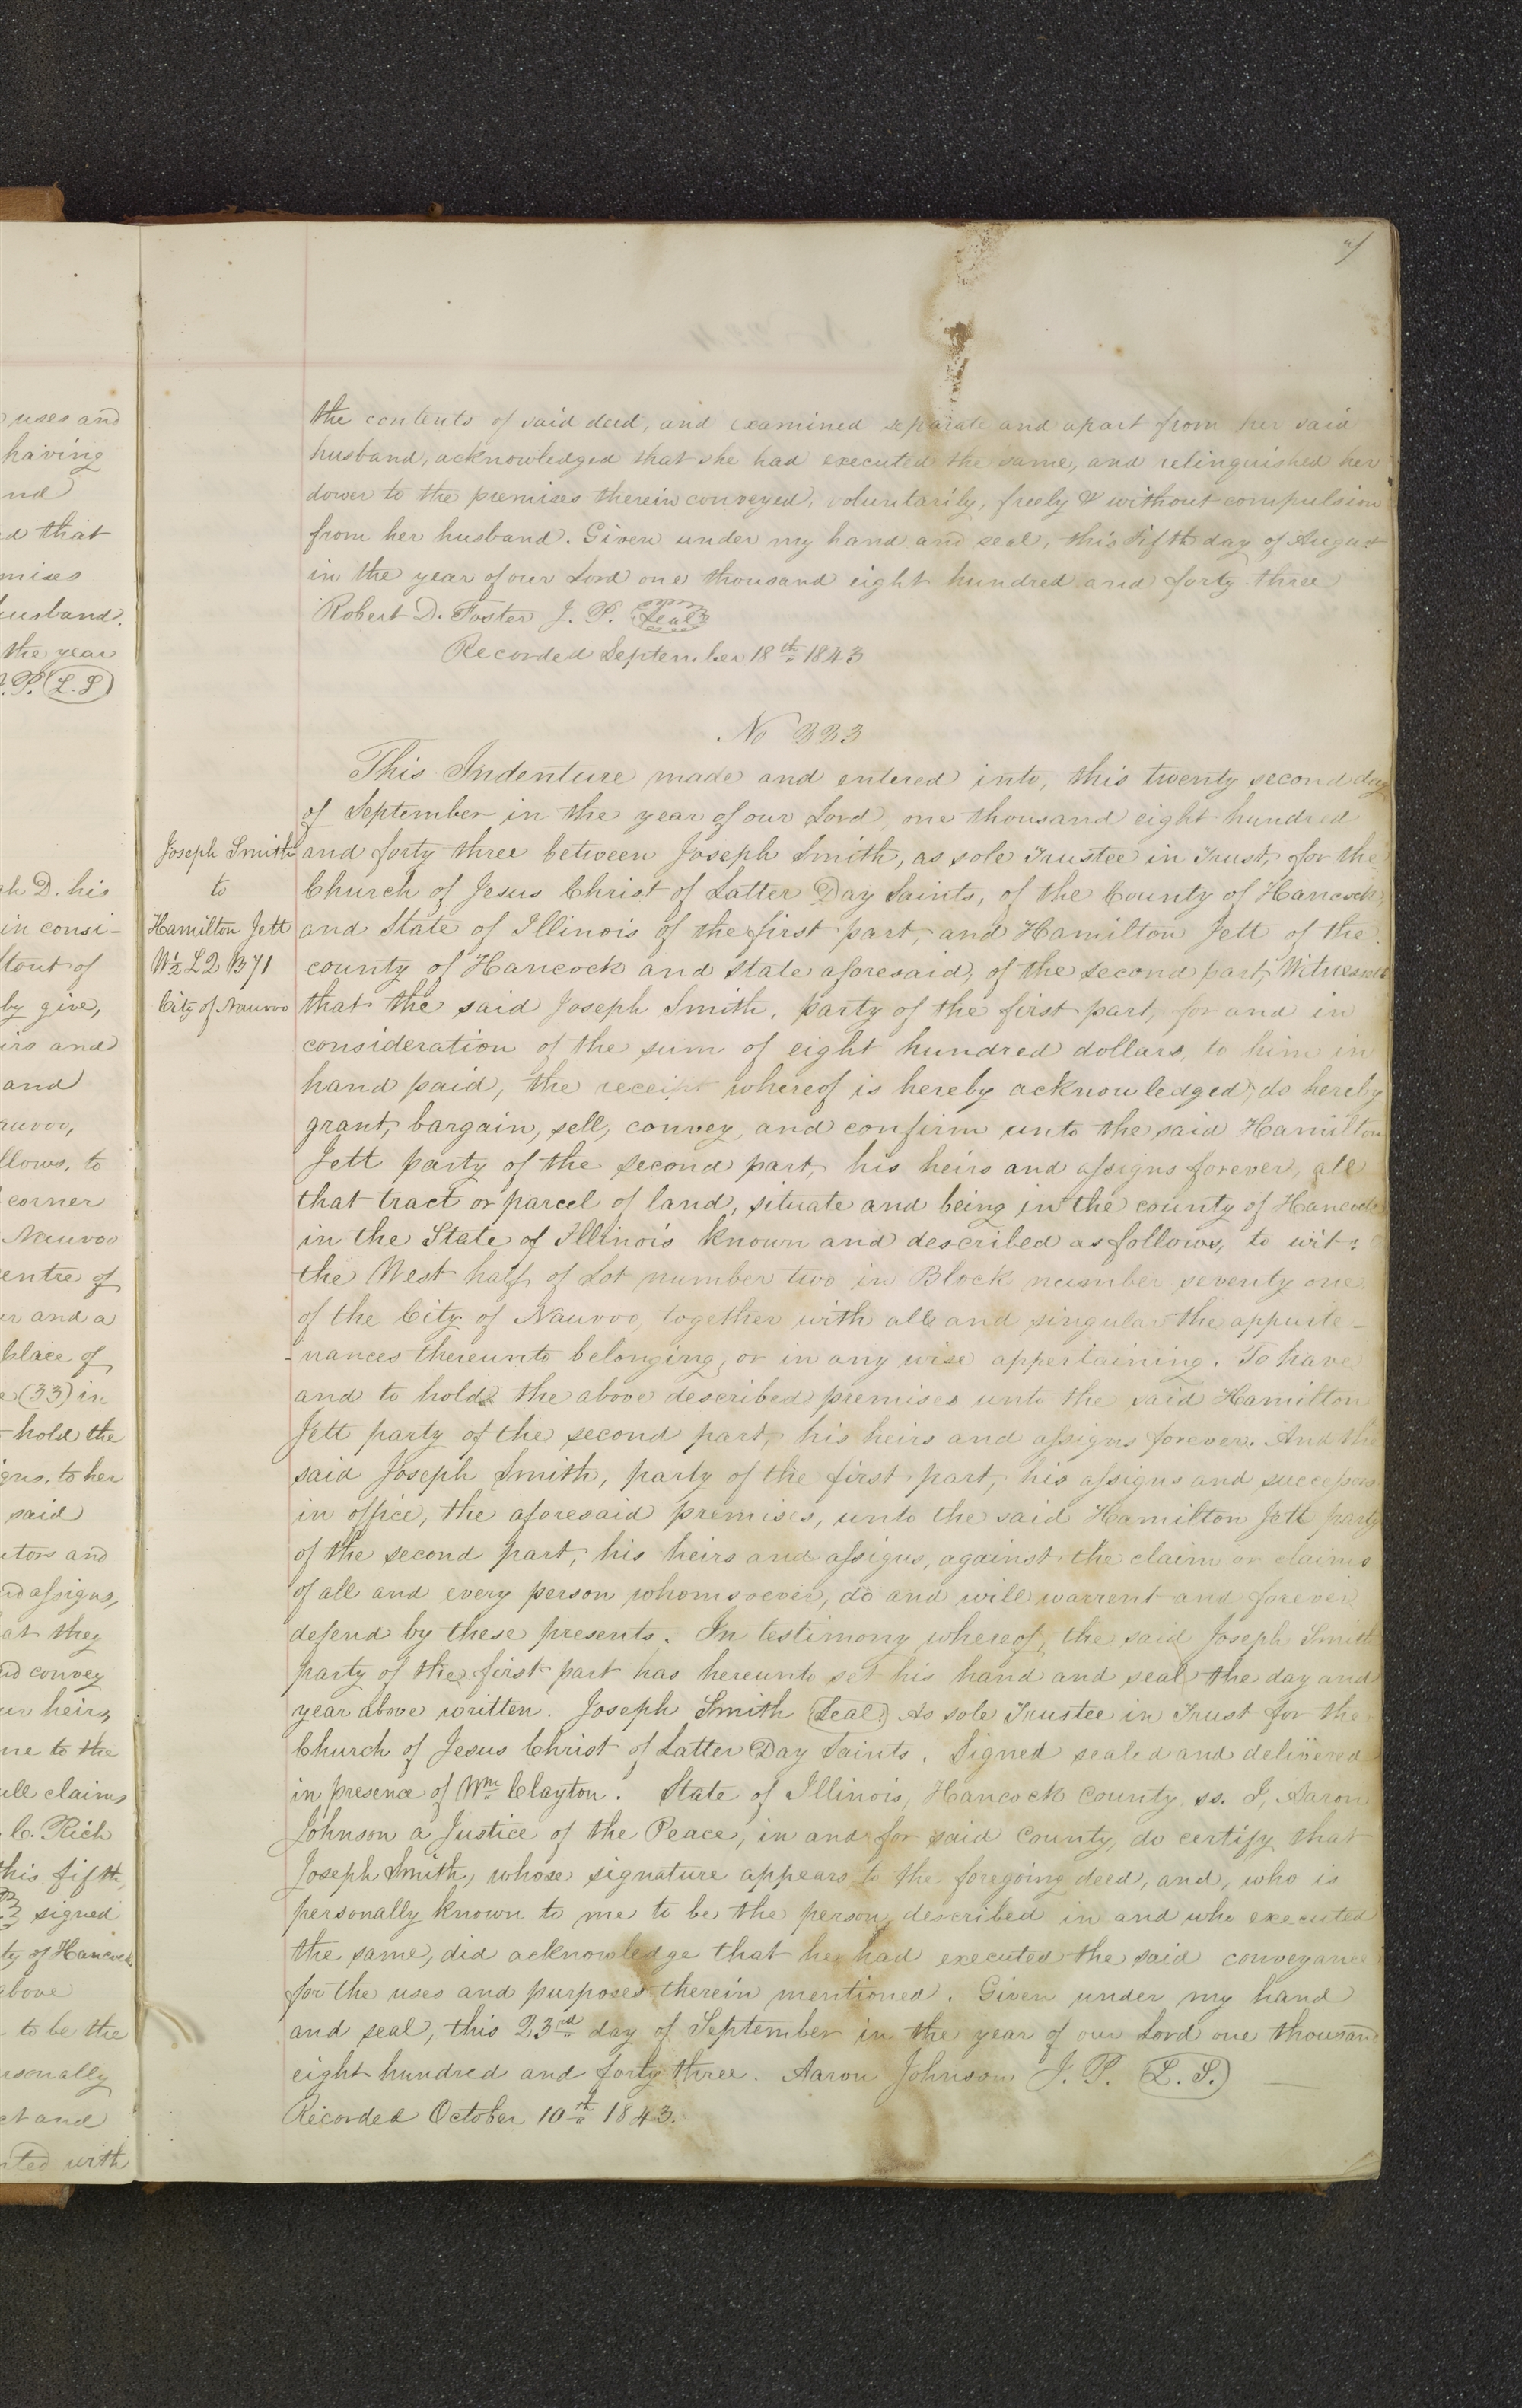 the contents of said deed, and examined separate and apart from her said
husband, acknowledged that she had executed the same, and relinquished her
dower to the premises therein conveyed, voluntarily, freely & without compulsion
from her husband. Given under my hand and seal, this fifth day of August
in the year of our Lord one thousand eight hundred and forty three
Robert D. Foster J. P. Seal
Recorded September 18th 1843
No 223
This Indenture made and entered into, this twenty second day
of September in the year of our Lord, one thousand eight hundred
and forty three between Joseph Smith, as sole Trustee in Trust, for the
Church of Jesus Christ of Latter Day Saints, of the County of Hancock,
and State of Illinois of the first part, and Hamilton Jett of the
county of Hancock and State aforesaid, of the second part, Witnesseth
that the said Joseph Smith, party of the first part, for and in
consideration of the sum of eight hundred dollars, to him in
hand paid, the receipt whereof is hereby acknowledged, do hereby
grant, bargain, sell, convey, and confirm unto the said Hamilton
Jett party of the second part, his heirs and assigns forever, all
that tract or parcel of land, situate and being in the county of Hancock
in the State of Illinois known and described as follows, to wit:
the West half of Lot number two in Block number seventy one
of the City of Nauvoo, together with all and singular the appurte-
-nances thereunto belonging, or in any wise appertaining. To have
and to hold the above described premises unto the said Hamilton
Jett party of the second part, his heirs and assigns forever. And the
said Joseph Smith, party of the first part, his assigns and successors
in office, the aforesaid premises, unto the said Hamilton Jett party
of the second part, his heirs and assigns, against the claim or claims
of all and every person whomsoever, do and will warrent and forever
defend by these presents. In testimony whereof, the said Joseph Smith
party of the first part has hereunto set his hand and seal the day and
year above written. Joseph Smith (Seal.) As sole Trustee in Trust for the
Church of Jesus Christ of Latter Day Saints. Signed sealed and delivered
in presence of Wm Clayton. State of Illinois, Hancock County, ss. I, Aaron
Johnson a Justice of the Peace, in and for said County, do certify that
Joseph Smith, whose signature appears to the foregoing deed, and, who is
personally known to me to be the person described in and who executed
the same, did acknowledge that he had executed the said conveyance
for the uses and purposes therein mentioned. Given under my hand
and seal, this 23rd day of September in the year of our Lord one thousand
eight hundred and forty three. Aaron Johnson J. P. (L. S.)
Recorded October 10th 1843.
Joseph Smith
to
Hamilton Jett
W½ L2 B71
City of Nauvoo
uses and
having
nd
d that
mises
husband.
the year
J.P. (L.S)
ah D. his
in consi-
tout of
by give,
irs and
and
auvoo,
llows, to
corner
Nauvoo
entre of
ur and a
place of
e (33) in
hold the
igns, to her
said
utors and
nd assigns,
at they
nd convey
ur heirs
me to the
all claims
C. Rich
this fifth
signed
ty of Hancock
above
to be the
rsonally
ct and
ted with